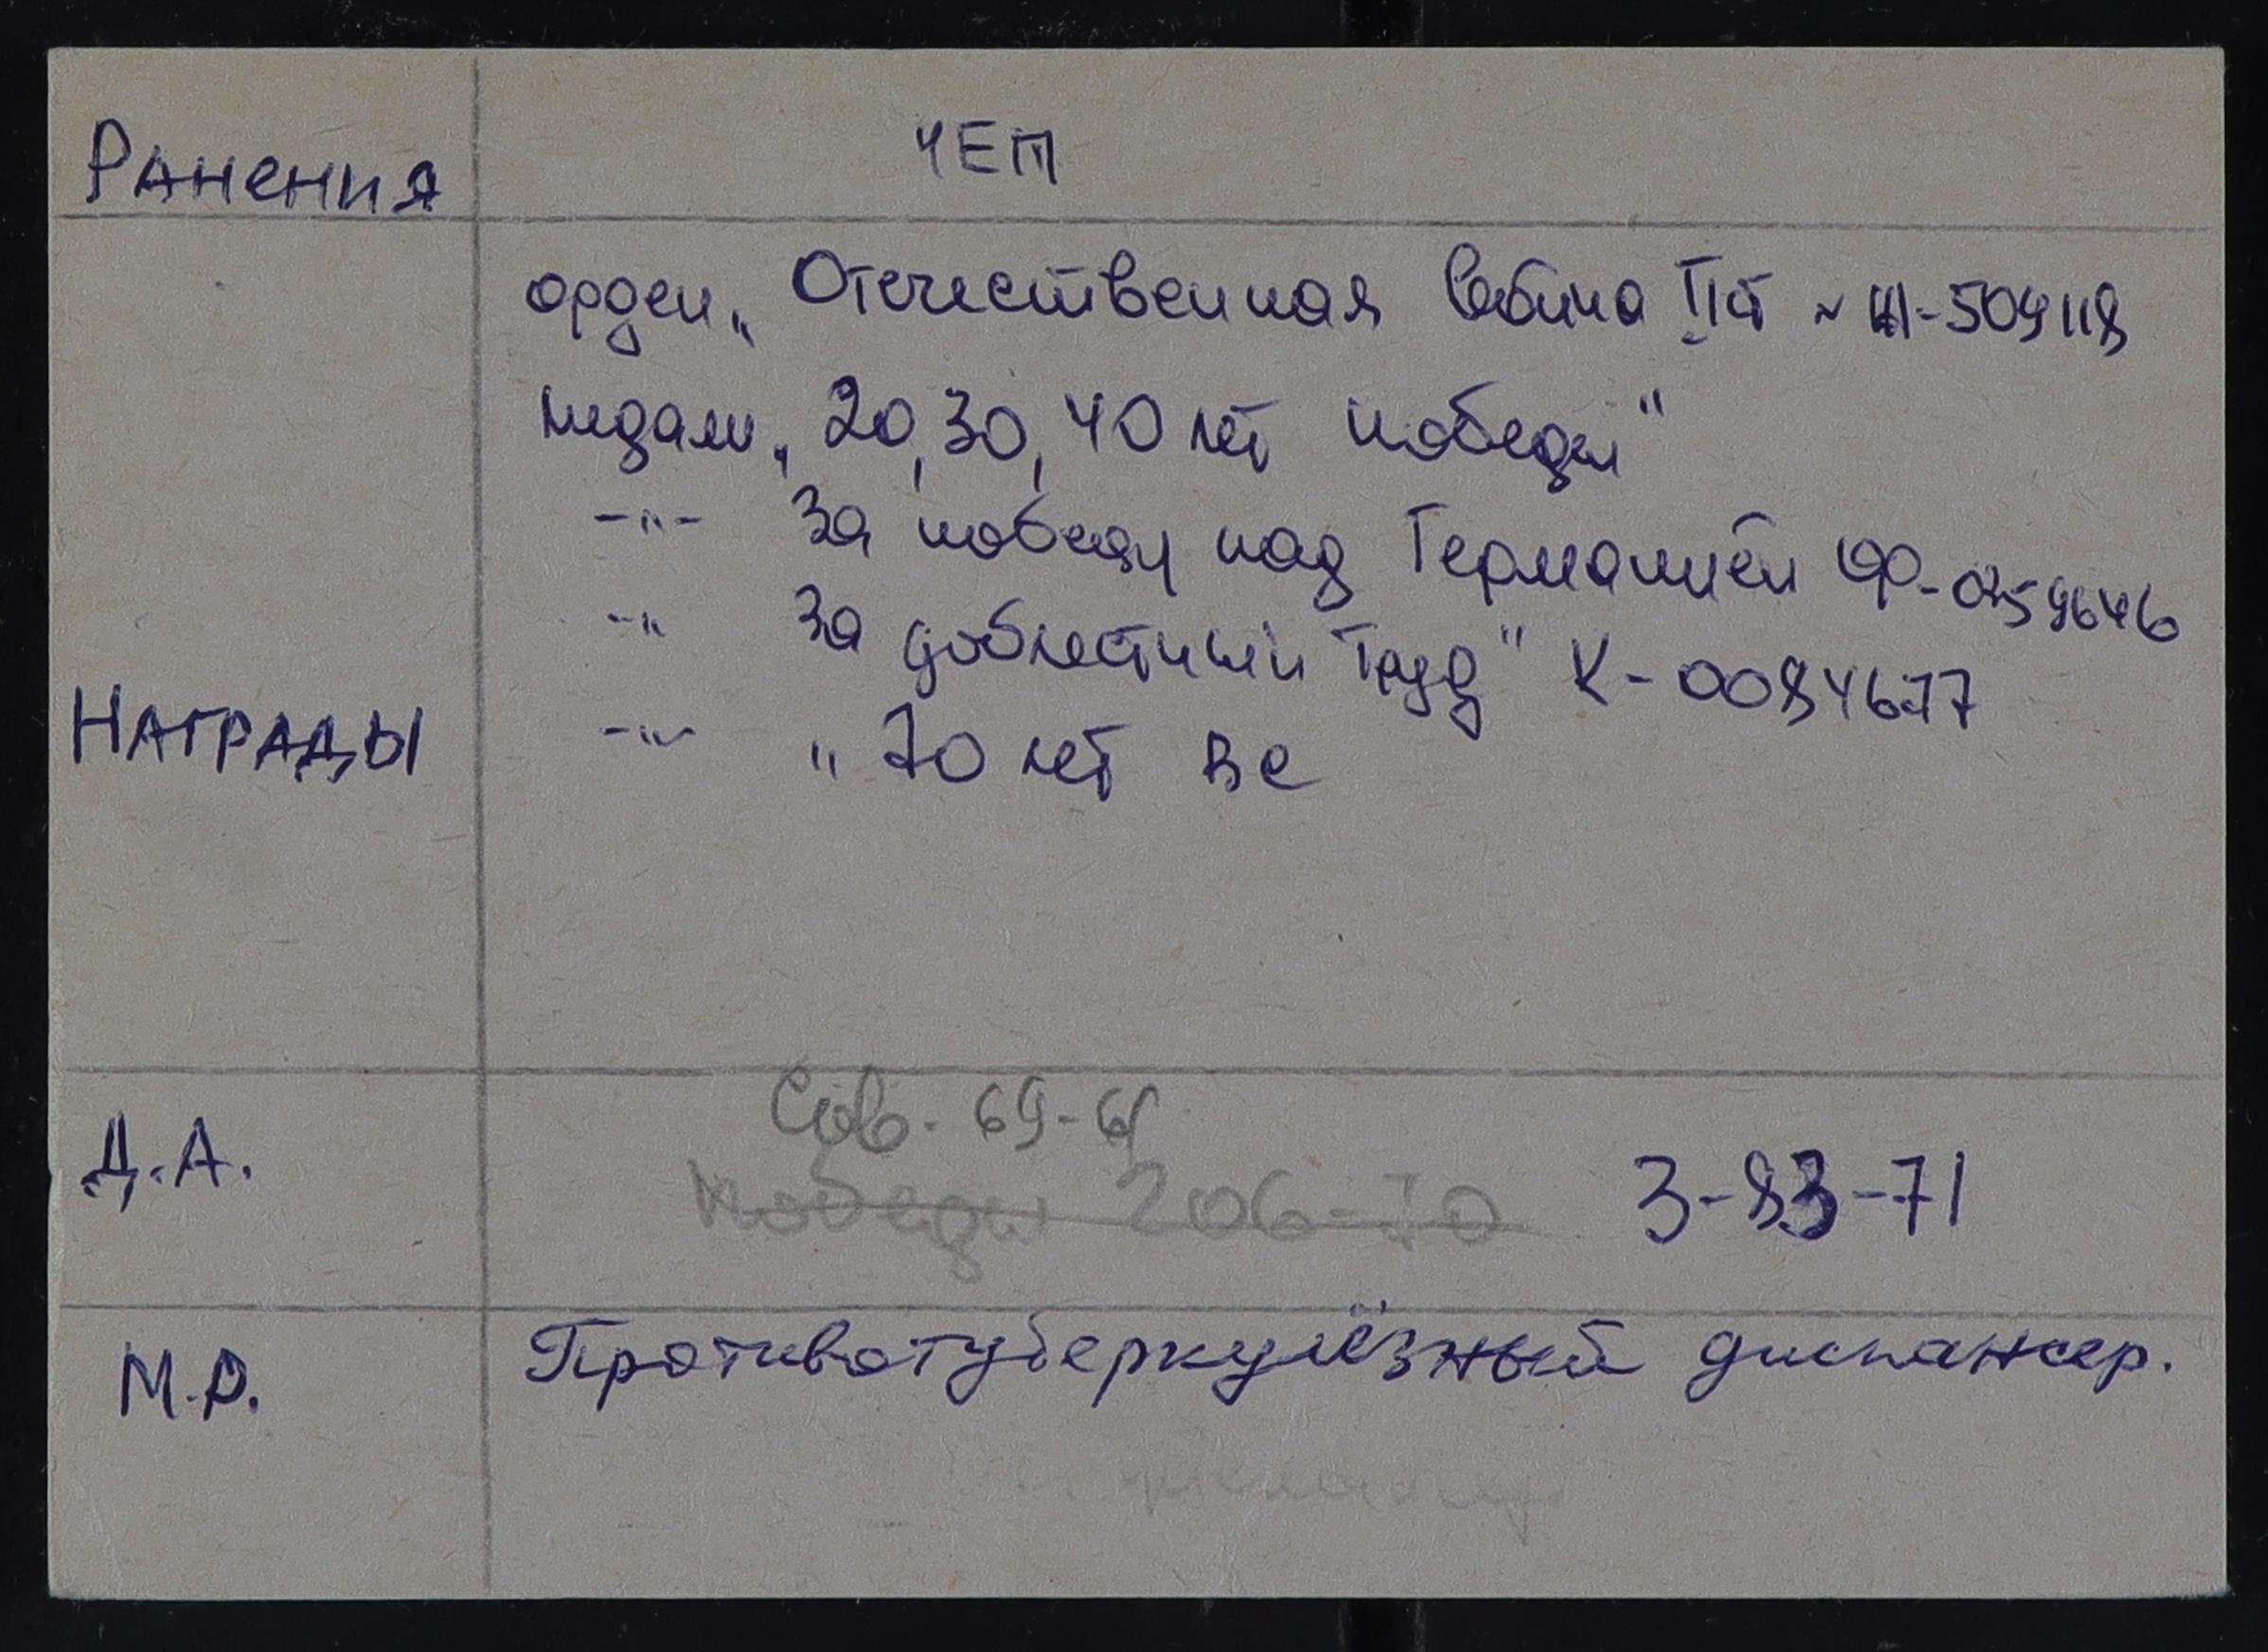 Ранения чет
орден „Отечественная война II ст № Ш-509118
медали „20, 30, 40 лет победы"
-"- За победу над Германией ЮФ-0259646
-"- За доблестный Труд" К-0084677
Награды -"- „70 лет ВС
Сов. 69-61
Д.А. Победы 206-70 3-83-71
М.Р. Противотуберкулёзный диспансер.